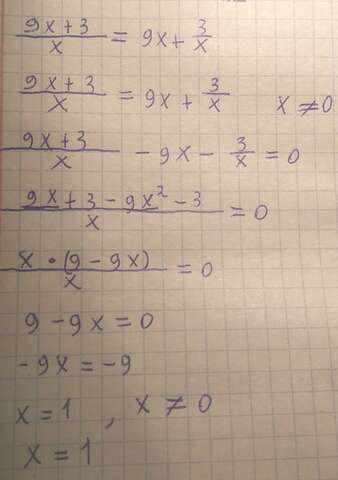 (9x + 3)/x = 9x + 3/x
(9x + 3)/x = 9x + 3/x x ≠ 0
(9x + 3)/x - 9x - 3/x = 0
(9x + 3 - 9x² - 3)/x = 0
(x • (9 - 9x))/x = 0
9 - 9x = 0
-9x = -9
x = 1 , x ≠ 0
x = 1